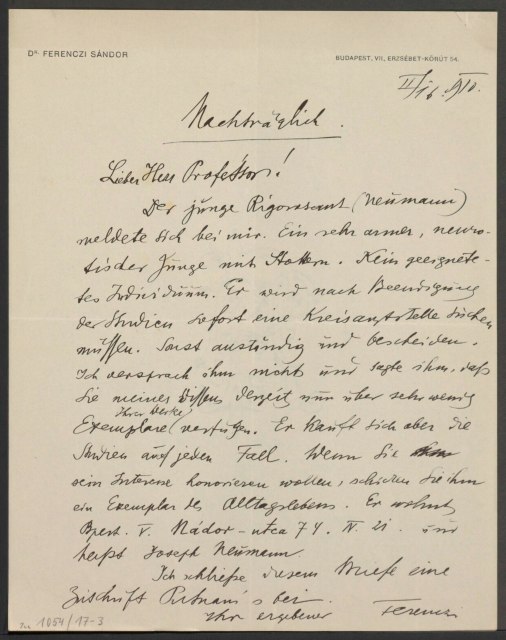 Dr. FERENCZI SÁNDOR
BUDAPEST, VII., ERZSÉBET-KÖRÚT 54.
II/16. 1910.
Nachträglich.
Lieber Herr Professor!
Der junge Rigorosant (Neumann)
meldete sich bei mir. Ein sehr armer, neuro-
tischer Junge mit Stottern. Kein geeignete-
tes Individuum. Er wird nach Beendigung
der Studien sofort eine Kreisarztstelle suchen
müssen. Sonst anständig und bescheiden.
Ich versprach ihm nicht und sagte ihm, daß
Sie meines Wissens derzeit nur über sehr wenig
Ihrer Werke
Exemplare verfügen. Er kauft sich aber die
Studien auf jeden Fall. Wenn Sie
sein Interesse honorieren wollen, schicken Sie ihm
ein Exemplar des Alltagslebens. Er wohnt
Bpest. V. Nádor-utca 74. IV. 21. und
heißt Joseph Neumann.
Ich schließe diesem Briefe eine
Zuschrift Putnam's bei.
Ihr ergebener Ferenczi
1054/17-3